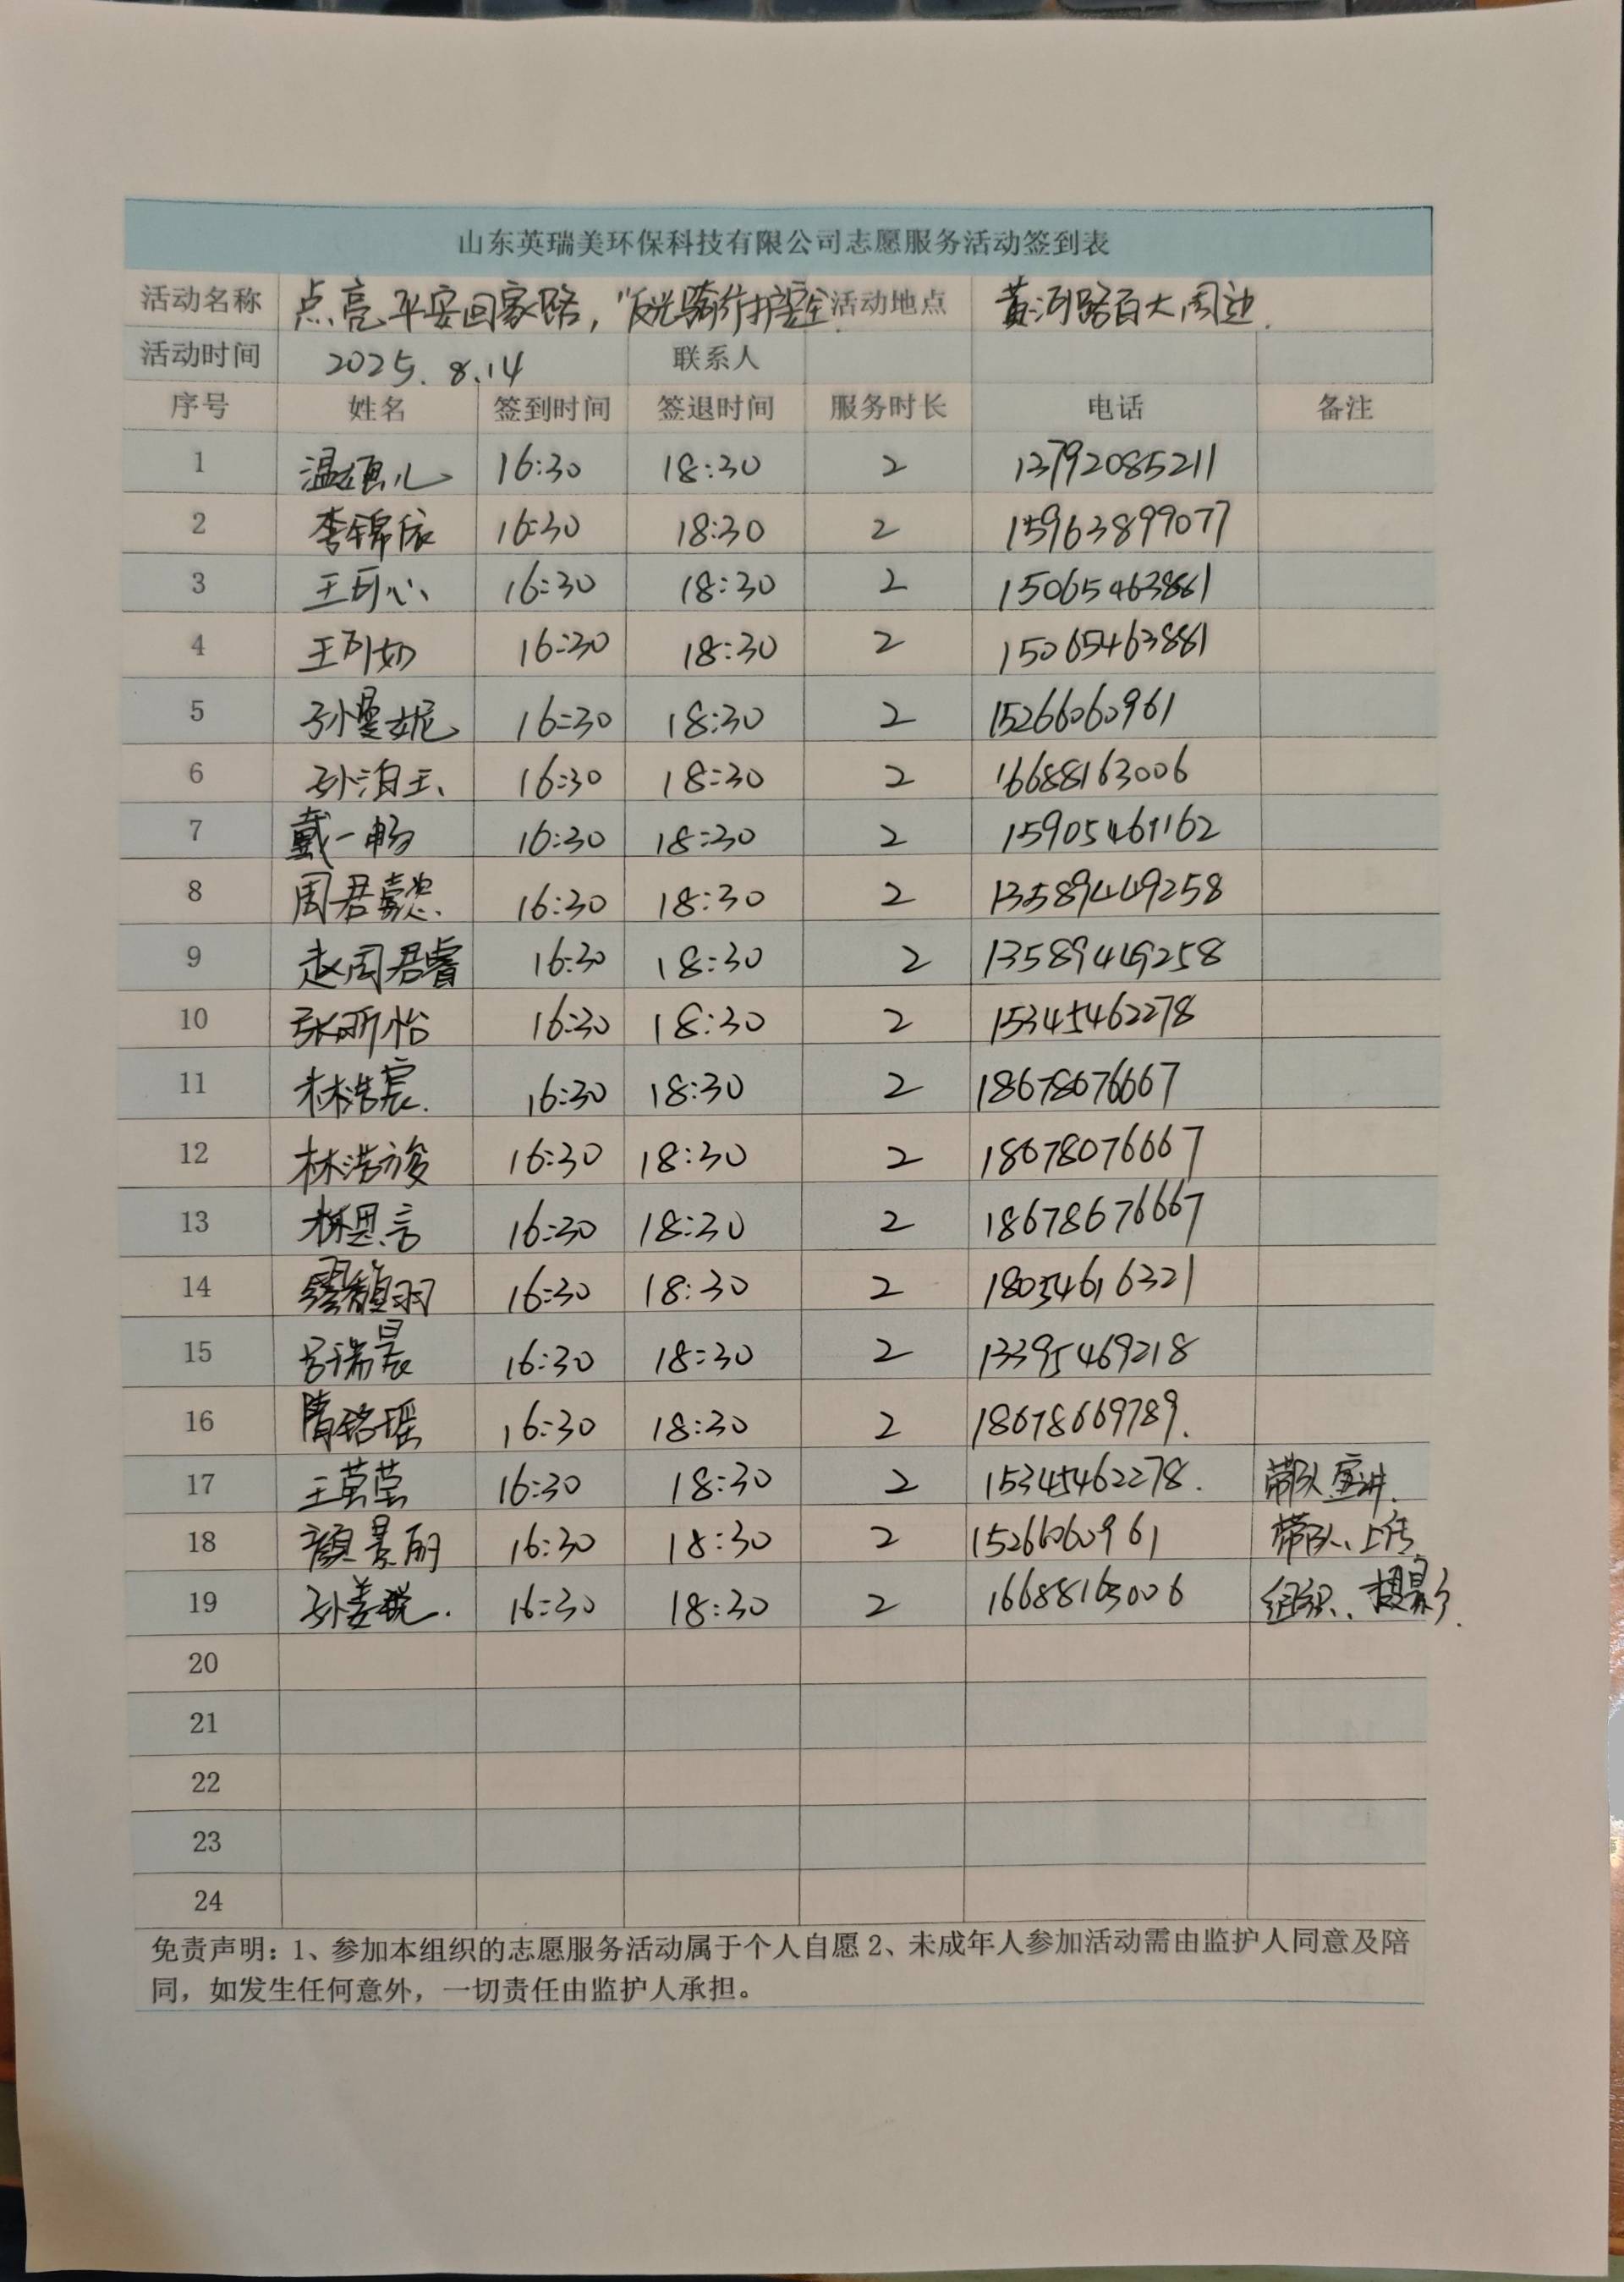 山东英瑞美环保科技有限公司志愿服务活动签到表
活动名称 点亮平安回家路，“反光骑行护安全 活动地点 黄河路百大周边.
活动时间 2025.8.14 联系人
序号 姓名 签到时间 签退时间 服务时长 电话 备注
1 16:30 18:30 2 13792085211
2 李锦依 16:30 18:30 2 15963899077
3 王可心 16:30 18:30 2 15065463881
4 王可如 16:30 18:30 2 15065463881
5 孙曼妮 16:30 18:30 2 15266060961
6 孙泊王 16:30 18:30 2 16688163006
7 戴一畅 16:30 18:30 2 15905461162
8 周君懿 16:30 18:30 2 13589449258
9 赵周君睿 16:30 18:30 2 13589449258
10 张昕怡 16:30 18:30 2 15345462278
11 林浩宸. 16:30 18:30 2 18678676667
12 林浩 16:30 18:30 2 18678076667
13 林思言 16:30 18:30 2 18678676667
14 馥羽 16:30 18:30 2 18054616321
15 吕瑞晨 16:30 18:30 2 13395469218
16 隋铭瑶 16:30 18:30 2 18678669789.
17 王莹莹 16:30 18:30 2 15345462278. 带队宣讲.
18 颜景丽 16:30 18:30 2 15266060961 带队、上传
19 孙姜 16:30 18:30 2 16688163006 组织、摄影.
20
21
22
23
24
免责声明：1、参加本组织的志愿服务活动属于个人自愿 2、未成年人参加活动需由监护人同意及陪
同，如发生任何意外，一切责任由监护人承担。